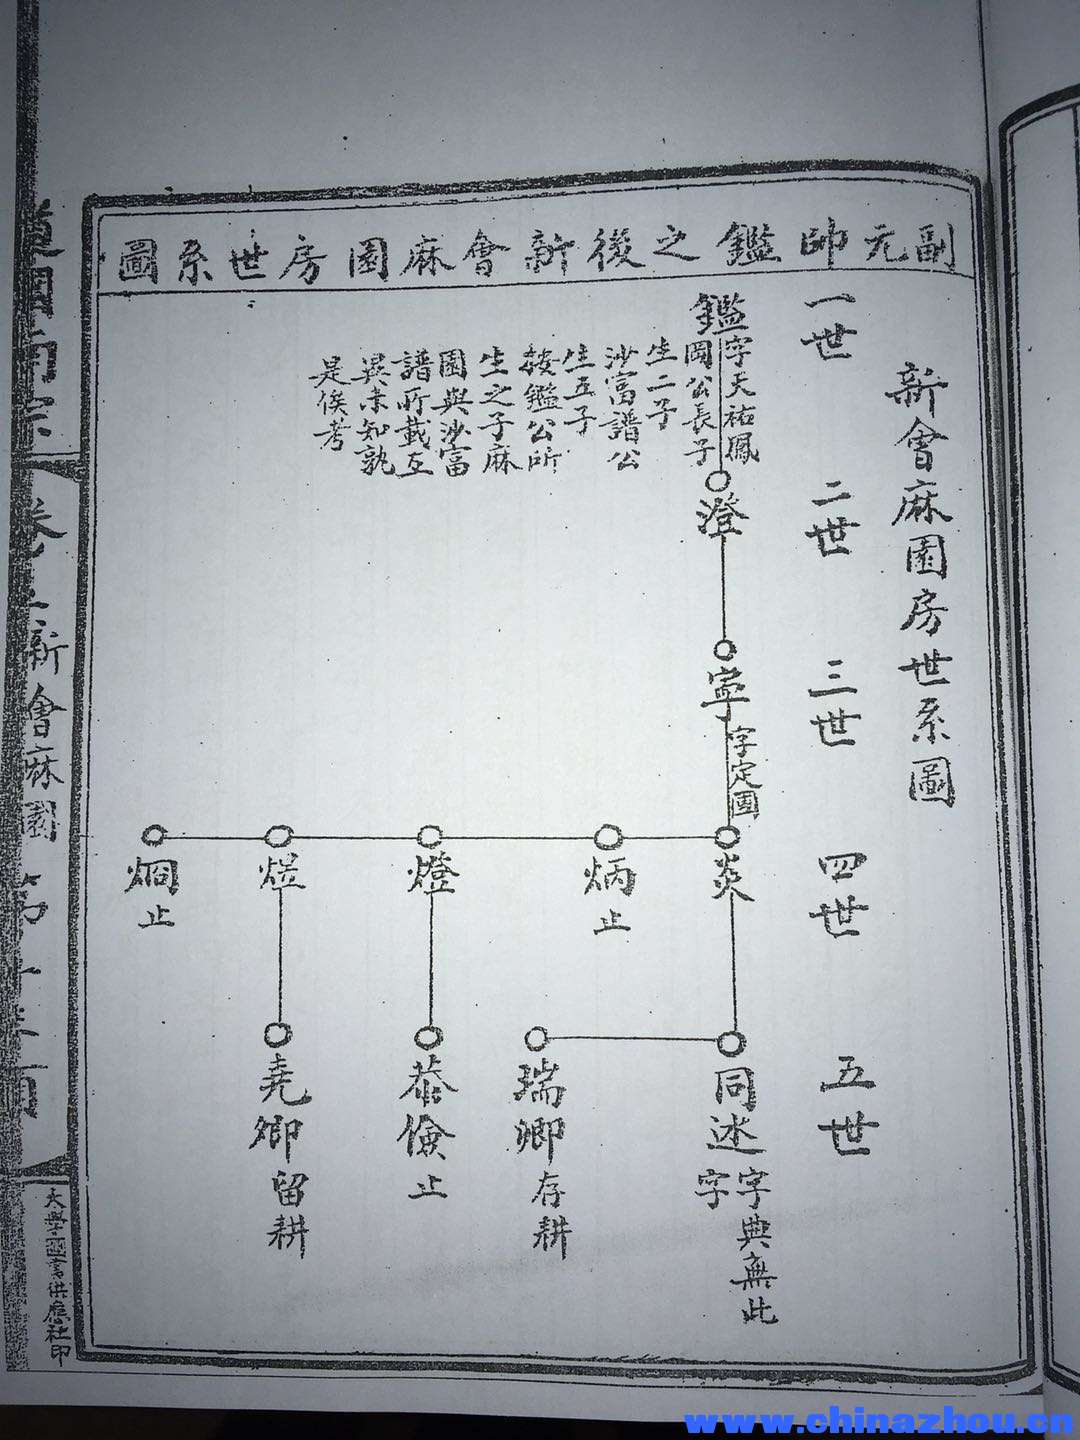 副元帥鑑之後新會麻園房世系圖
新會麻園房世系圖
一世
二世
三世
四世
五世
鑑
字天祐鳳
岡公長子
生二子
沙富譜公
生五子
按鑑公所
生之子麻
園與沙富
譜所載互
異未知孰
是俟考
澄
寧
字定國
炎
炳
止
燈
熤
烱
止
同述
字典無此
字
瑞卿
存耕
恭儉
止
堯卿
留耕
新會麻園
大學圖書供應社印
www.chinazhou.cn